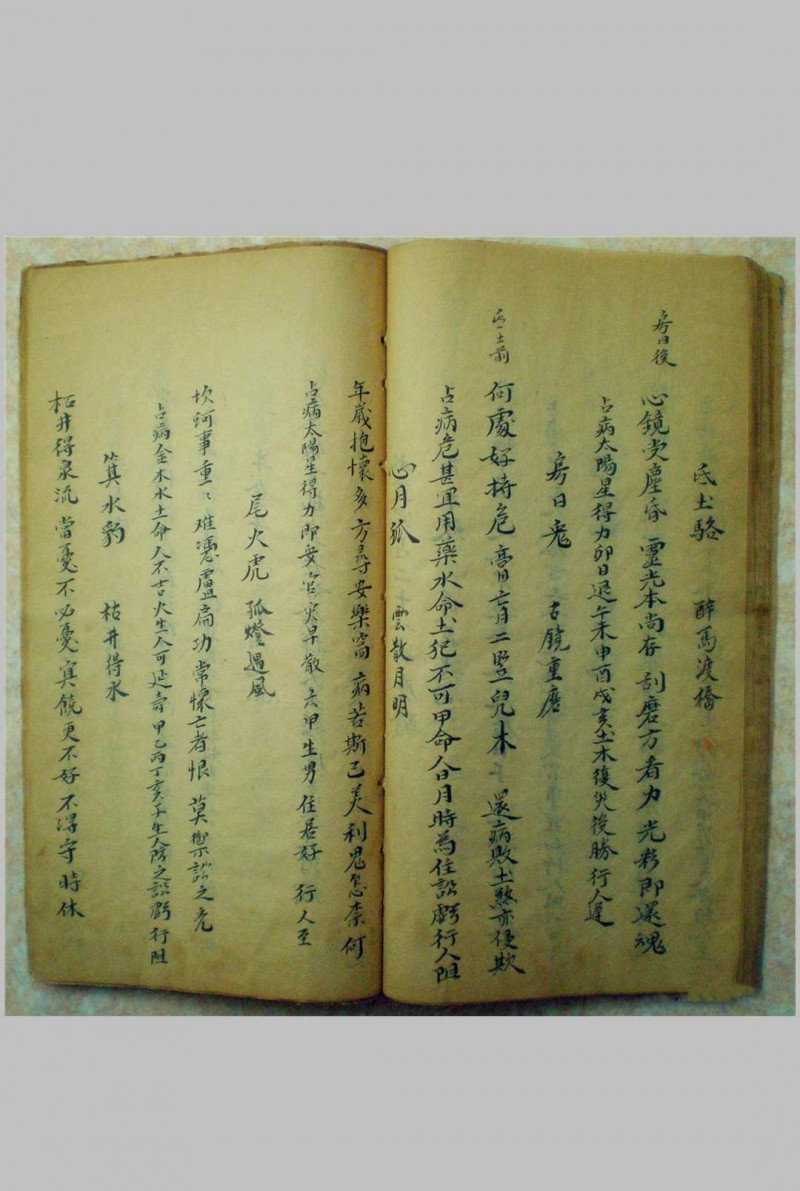 氐土駱 醉馬渡橋
房日後
心鏡受塵昏 靈光本尚存 刮磨方着力 光彩即還魂
占病太陽星得力卯日退午未申酉戌亥土木後災後勝行人遅
房日兎 古镜重磨
氐土前
何處好持危 二豎兒木 還病敗土煞亦便欺
占病危甚宜用藥水命土犯不可甲命人合日月時為住訟虧行人阻
心月狐 雲散月明
年歲抱懷多 方尋安樂窩 病苦斯已美利見怎柰何
占病太陽星得力即安官災早散 六甲生男 住居好 行人至
尾火虎 孤燈遇風
坎坷事重〻 难憑盧扁功 常懷亡者恨 莫禦訟之
占病金木水土命人不吉火生人可延壽甲乙丙丁亥子生人防之訟虧行阻
箕水豹 枯井得水
枯井得泉流 當憂不必憂 更不好 不淂守時休